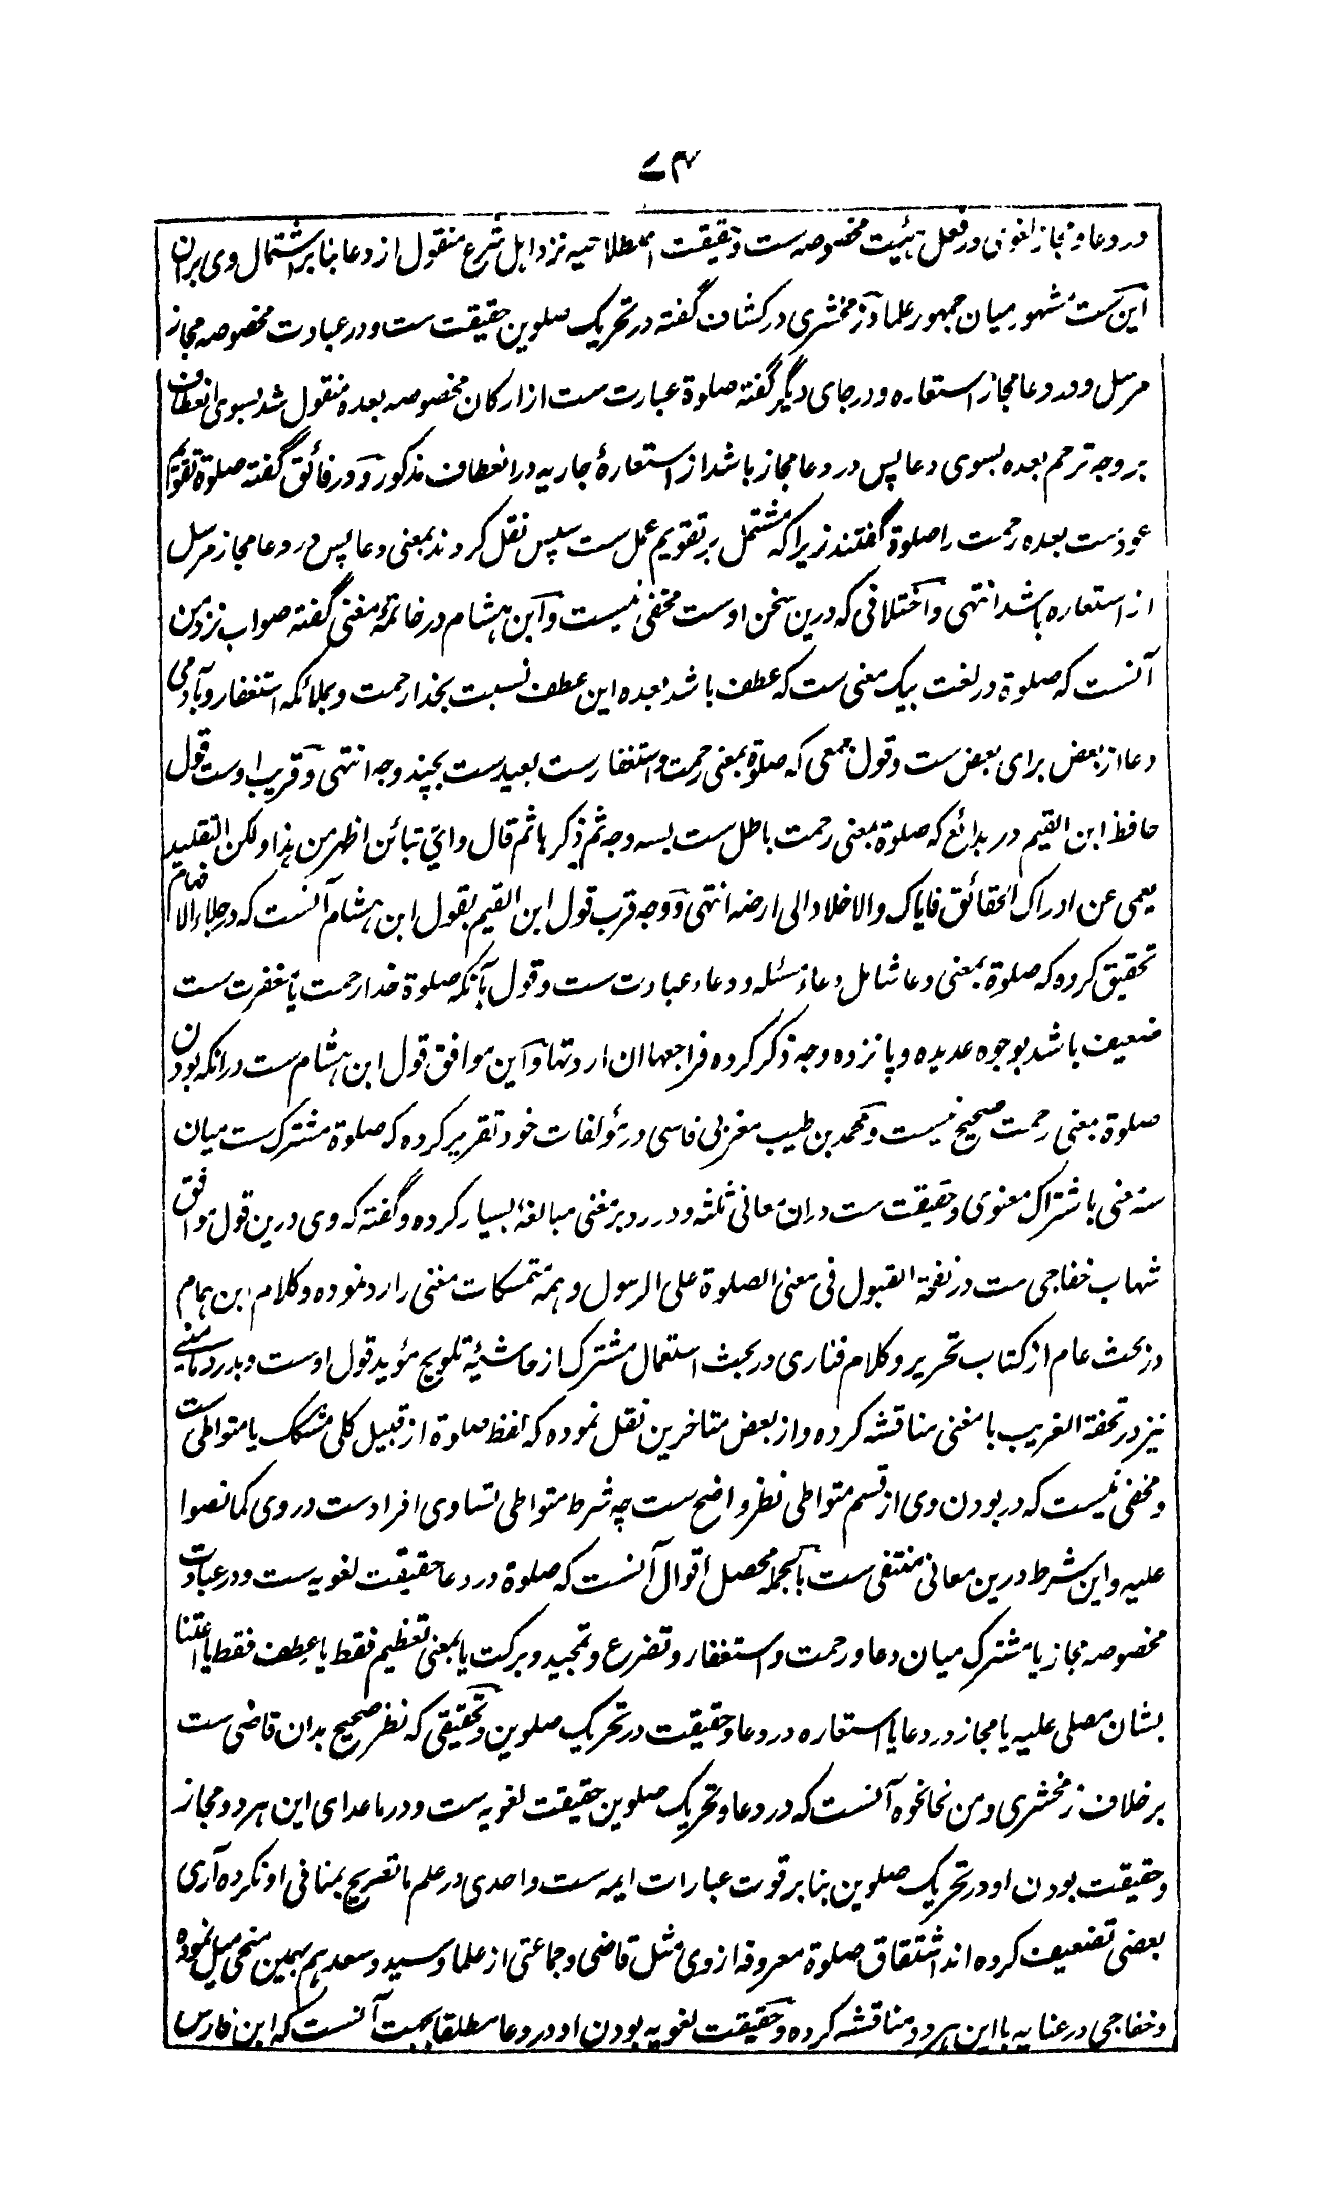 ۷۳۴
در دعا و مجاز لغوی در فعل هیئت مخصوصه ست و حقیقت اصطلاحیه نزد اهل شرع منقول از دعا بنا بر اشتمال وی بران
این ست مشهور میان جمهور علما و زمخشری در کشاف گفته در تحریک صلوین حقیقت ست و در عبادت مخصوصه مجاز
مرسل و در دعا مجاز استعاره و در جای دیگر گفته صلوة عبارت ست از ارکان مخصوصه بعده منقول شد بسوی انعطاف
بر وجه ترحم بعده بسوی دعا پس در دعا مجاز باشد از استعارهٔ جاریه در انعطاف مذکور و در فائق گفته صلوة تقویم
عودست بعده رحمت را صلوة گفتند زیرا که مشتمل بر تقویم عمل ست سپس نقل کردند بمعنی دعا پس در دعا مجاز مرسل
از استعاره باشد انتهی و اختلافی که درین سخن اوست مخفی نیست و ابن هشام در خاتمهٔ مغنی گفته صواب نزد من
آنست که صلوة در لغت بیک معنی ست که عطف باشد بعده این عطف نسبت بخدا رحمت و بملائکه استغفار و بآدمی
دعا از بعض برای بعض ست و قول جمعی که صلوة بمعنی رحمت و استغفار ست بعیدست بچند وجه انتهی و قریب اوست قول
حافظ ابن القیم در بدائع که صلوة بمعنی رحمت باطل ست بسه وجه ثم ذکرها ثم قال وای تبائن اظهر من هذا ولکن التقلید
یعمی عن ادراک الحقائق فایاک والاخلاد الی ارضه انتهی و وجه قرب قول ابن القیم بقول ابن هشام آنست که در جلاء الافهام
تحقیق کرده که صلوة بمعنی دعا شامل دعاء مسئله و دعاء عبادت ست و قول بآنکه صلوة خدا رحمت یا مغفرت ست
ضعیف باشد بوجوه عدیده و پانزده وجه ذکر کرده فراجعها ان اردتها و این موافق قول ابن هشام ست در انکه بودن
صلوة بمعنی رحمت صحیح نیست و محمد بن طیب مغربی فاسی در مؤلفات خود تقریر کرده که صلوة مشترک ست میان
سه معنی باشتراک معنوی و حقیقت ست دران معانی ثلثه و در رد بر مغنی مبالغهٔ بسیار کرده و گفته که وی درین قول موافق
شهاب خفاجی ست در نفحة القبول فی معنی الصلوة علی الرسول و همه متمسکات مغنی را رد نموده و کلام ابن همام
در بحث عام از کتاب تحریر و کلام فناری در بحث استعمال مشترک از حاشیهٔ تلویح مؤید قول اوست و بدر دمامینی
نیز در تحفة الغریب با مغنی مناقشه کرده و از بعض متاخرین نقل نموده که لفظ صلوة از قبیل کلی مشکک یا متواطی ست
و مخفی نیست که در بودن وی از قسم متواطی نظر واضح ست چه شرط متواطی تساوی افراد ست در وی کما نصوا
علیه و این شرط درین معانی منتفی ست بالجمله محصل اقوال آنست که صلوة در دعا حقیقت لغویه ست و در عبادت
مخصوصه مجاز یا مشترک میان دعا و رحمت و استغفار و تضرع و تمجید و برکت یا بمعنی تعظیم فقط یا عطف فقط یا اعتنا
بشان مصلی علیه یا مجاز در دعا یا استعاره در دعا و حقیقت در تحریک صلوین و تحقیقی که نظر صحیح بدان قاضی ست
بر خلاف زمخشری و من نحا نحوه آنست که در دعا و تحریک صلوین حقیقت لغویه ست و در ما عدای این هر دو مجاز
و حقیقت بودن او در تحریک صلوین بنا بر قوت عبارات ایمه ست و احدی در علم ما تصریح بمنافی او نکرده آری
بعضی تضعیف کرده اند اشتقاق صلوة معروفه از وی مثل قاضی و جماعتی از علما و سید و سعد هم بهمین منحی میل نموده
و خفاجی در عنایه با این هر دو مناقشه کرده و حقیقت لغویه بودن او در دعا مطلقا بجهت آنست که ابن فارس